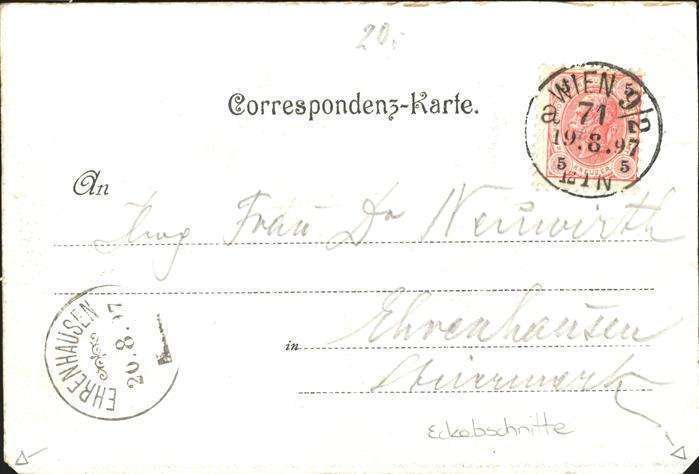 20,-
Correspondenz-Karte.
WIEN 9/2
a 71
19.8.97
12-1N
5 5 5
An
Frau Dr Neuwirth
in Ehrenhausen
Steiermark
EHRENHAUSEN
20.8.97
Eckabschnitte